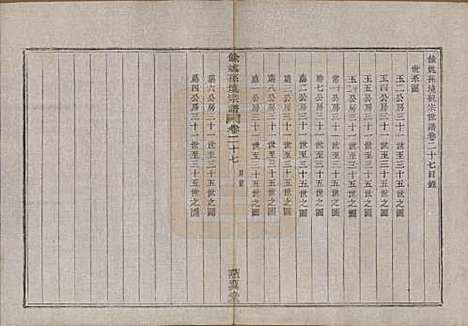 餘姚孫境宗世譜卷二十七目錄
世系圖
玉二公房三十一世至三十五世之圖
玉四公房三十一世至三十五世之圖
玉五公房三十一世至三十五世之圖
玉六公房三十一世至三十五世之圖
常一公房三十一世至三十五世之圖
勝七公房三十一世至三十五世之圖
嘉二公房三十一世至三十五世之圖
嘉三公房三十一世至三十五世之圖
嘉八公房三十一世至三十五世之圖
公房三十一世至三十五世之圖
餘姚孫境宗譜 卷二十七 目錄
六公房三十一世至三十五世之圖
四公房三十一世至三十五世之圖